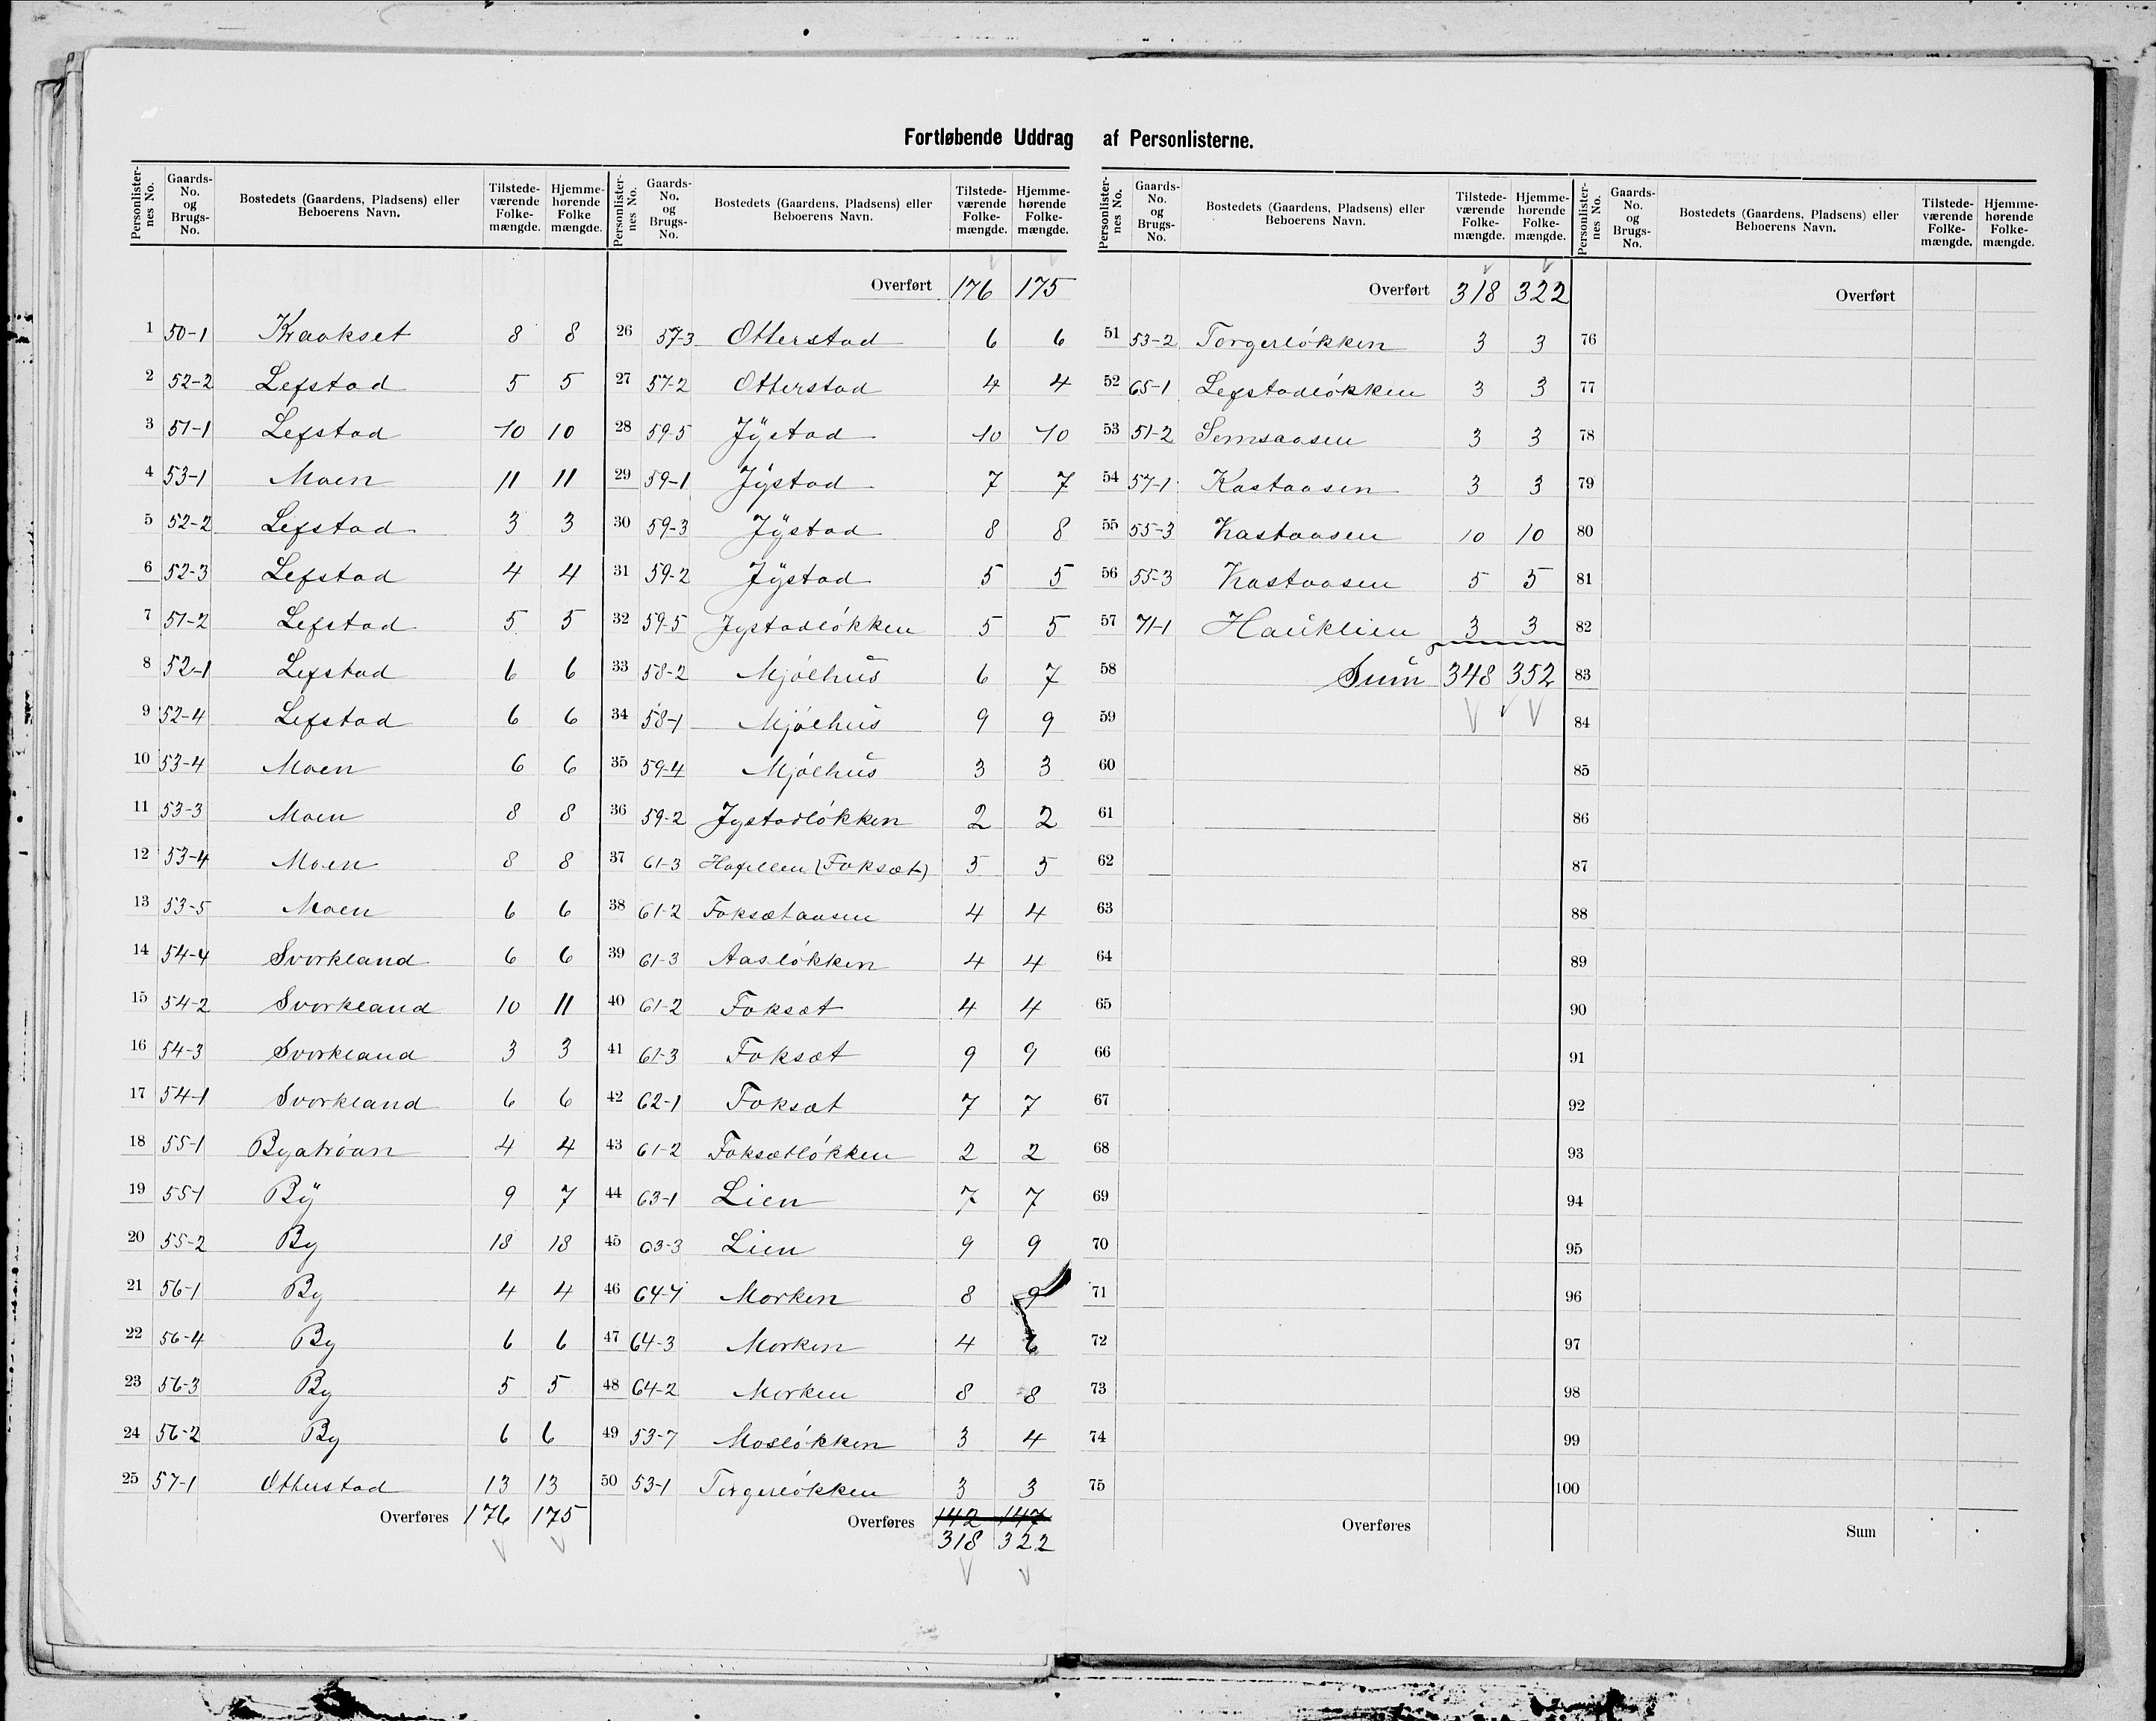 Fortløbende Uddrag af Personlisterne.
Personlister-nes No. | Gaards-No. og Brugs-No. | Bostedets (Gaardens, Pladsens) eller Beboerens Navn. | Tilstede-værende Folke-mængde. | Hjemme-hørende Folke mængde.
1 50-1 Kraakset 8 8
2 52-2 Lefstad 5 5
3 51-1 Lefstad 10 10
4 53-1 Moen 11 11
5 52-2 Lefstad 3 3
6 52-3 Lefstad 4 4
7 51-2 Lefstad 5 5
8 52-1 Lefstad 6 6
9 52-4 Lefstad 6 6
10 53-4 Moen 6 6
11 53-3 Moen 8 8
12 53-4 Moen 8 8
13 53-5 Moen 6 6
14 54-4 Svorkland 6 6
15 54-2 Svorkland 10 11
16 54-3 Svorkland 3 3
17 54-1 Svorkland 6 6
18 55-1 Byatrøan 4 4
19 55-1 Bÿ 9 7
20 55-2 By 18 18
21 56-1 By 4 4
22 56-4 By 6 6
23 56-3 By 5 5
24 56-2 By 6 6
25 57-1 Otterstad 13 13
Overføres 176 175
Personlister-nes No. | Gaards-No. og Brugs-No. | Bostedets (Gaardens, Pladsens) eller Beboerens Navn. | Tilstede-værende Folke-mængde. | Hjemme-hørende Folke-mængde.
Overført 176 175
26 57-3 Otterstad 6 6
27 57-2 Otterstad 4 4
28 59-5 Jÿstad 10 10
29 59-1 Jÿstad 7 7
30 59-3 Jÿstad 8 8
31 59-2 Jÿstad 5 5
32 59-5 Jystadløkken 5 5
33 58-2 Mjølhus 6 7
34 58-1 Mjølhus 9 9
35 59-4 Mjølhus 3 3
36 59-2 Jystadløkken 2 2
37 61-3 (Foksæt) 5 5
38 61-2 Foksætaasen 4 4
39 61-3 Aasløkken 4 4
40 61-2 Foksæt 4 4
41 61-3 Foksæt 9 9
42 62-1 Foksæt 7 7
43 61-2 Foksætløkken 2 2
44 63-1 Lien 7 7
45 63-3 Lien 9 9
46 Morken 8 9
47 64-3 Morken 4 6
48 64-2 Morken 8 8
49 53-7 Moeløkken 3 4
50 53-1 Torgerløkken 3 3
Overføres 142 147
318 322
Personlister-nes No. | Gaards-No. og Brugs-No. | Bostedets (Gaardens, Pladsens) eller Beboerens Navn. | Tilstede-værende Folke-mængde. | Hjemme-hørende Folke-mængde.
Overført 318 322
51 53-2 Torgerløkken 3 3
52 65-1 Lefstadløkken 3 3
53 51-2 Semsaasen 3 3
54 57-1 Kastaasen 3 3
55 55-3 Kastaasen 10 10
56 55-3 Kastaasen 5 5
57 71-1 Hauklien 3 3
58 Sum 348 352
59
60
61
62
63
64
65
66
67
68
69
70
71
72
73
74
75
Overføres
Personlister-nes No. | Gaards-No. og Brugs-No. | Bostedets (Gaardens, Pladsens) eller Beboerens Navn. | Tilstede-værende Folke-mængde. | Hjemme-hørende Folke-mængde.
Overført
76
77
78
79
80
81
82
83
84
85
86
87
88
89
90
91
92
93
94
95
96
97
98
99
100
Sum